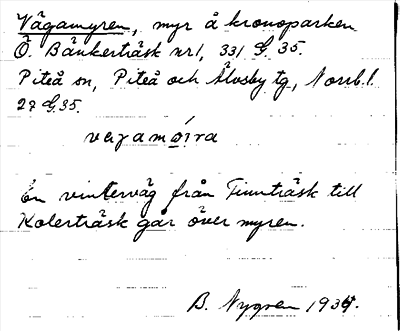 Vägamyren, myr å kronoparken
Ö. Bänkerträsk nr 1, 331 G. 35.
Piteå sn, Piteå och Älvsby tg, Norrb. l.
27 G. 35.
vägamo̲i̲ra
En vinterväg från Finnträsk till
Kolerträsk går över myren.
B. Nygren 1934.